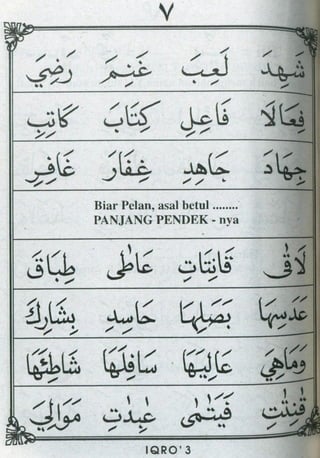 ٧
شَهِدَ لَعِبَ غَنِمَ رَضِيَ
فِعَالًا فَاعِلِ كِتَابَ كَاتِبِ
جِهَادَ جَاهِدِ غِفَارَ غَافِرِ
Biar Pelan, asal betul ........
PANJANG PENDEK - nya
لَاقٰى قَانِتَاتِ عَاطٰى طِبَاقَ
عَدَسِهَا بَصَلِهَا حَاسِدِ بِشَارِكَ
وَمَاهِيَ عَالِيَهَا سَافِلَهَا شَاطِئِهَا
قٰنِتٰتِ فَيَتٰمٰى عٰبِدٰتِ مَوَالِيَ
IQRO' 3